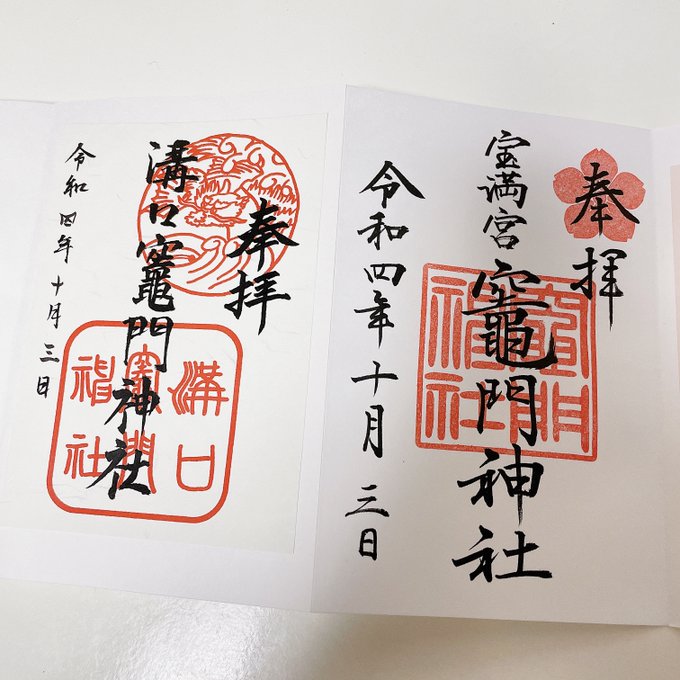 奉拝
宝満宮
竈門神社
令和四年十月三日
竈門神社
奉拝
溝口竈門神社
令和四年十月三日
溝口
竈門
神社